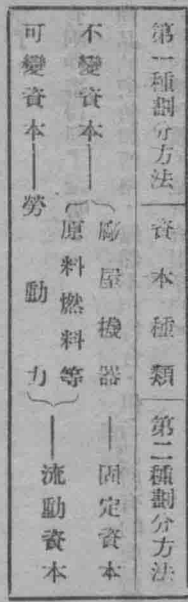 第一種劃分方法 資本種類 第二種劃分方法
不變資本 廠屋機器 固定資本
原料燃料等
可變資本 勞動力 流動資本